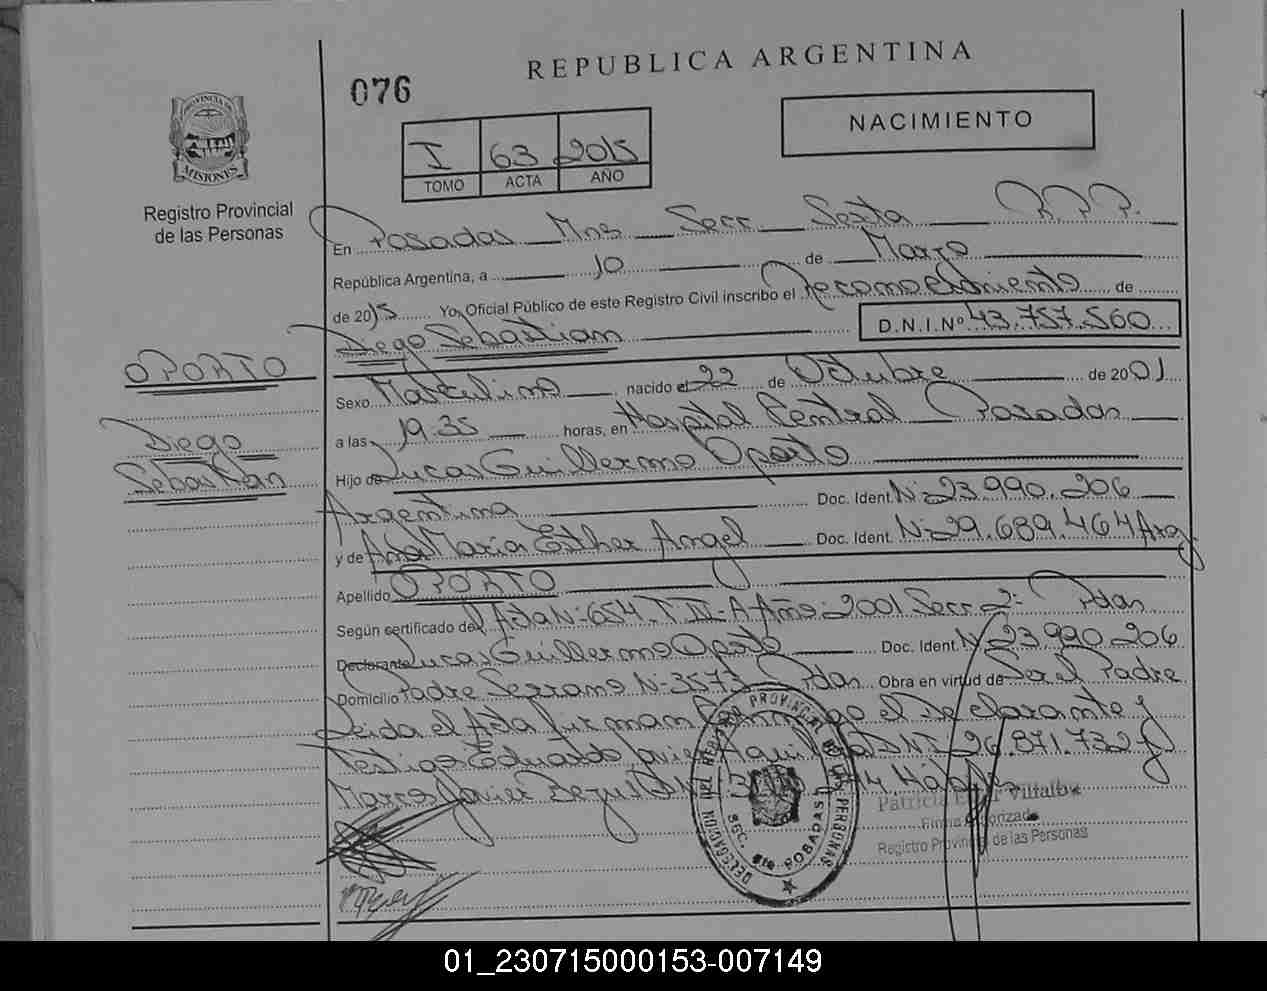 REPUBLICA ARGENTINA
076
NACIMIENTO
I 63 2015
TOMO ACTA AÑO
PROVINCIA DE
MISIONES
Registro Provincial
de las Personas
En Posadas Mns Secc. Sexta R.P.P.
República Argentina, a 10 de Marzo
de 2015 Yo, Oficial Público de este Registro Civil inscribo el reconocimiento de
Diego Sebastian D.N.I.Nº 43.757.560
OPORTO
Diego
Sebastián
Sexo Masculino nacido el 22 de Octubre de 2001
a las 19.35 horas, en Hospital Central Posadas
Hijo de Lucas Guillermo Oporto
Argentina Doc. Ident. Nº 23.990.206
y de Ana María Esther Angel Doc. Ident. Nº 29.689.464 Arg
Apellido OPORTO
Según certificado del Acta Nº 654. T. II-A Año: 2001 Secc 2º Pdas
Declarante Lucas Guillermo Oporto Doc. Ident. Nº 23.990.206
Domicilio Padre Serrano Nº 3573 Pdas Obra en virtud de Ser el Padre
Leida el Acta firman Conmigo el Declarante y
Testigos Eduardo Javier DNI 26.871.732 y
Marcos Javier DNI
DELEGACION DEL REGISTRO PROVINCIAL DE LAS PERSONAS
SEC. 6ta. POSADAS
Patricia Villalba
Firma Autorizada
Registro Provincial de las Personas
01_230715000153-007149